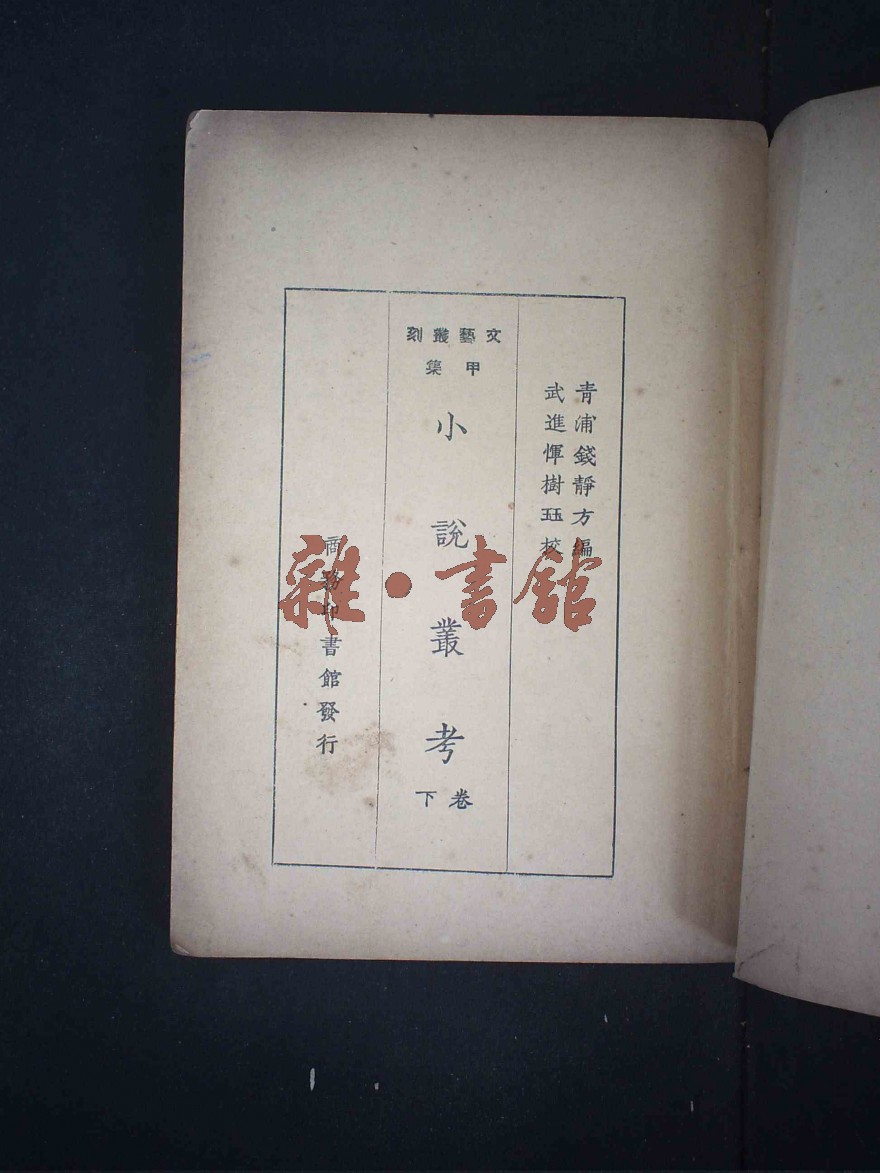 青浦錢靜方編
武進惲樹珏校
文藝叢刻
甲集
小說叢考
卷下
商務印書館發行
雜·書館